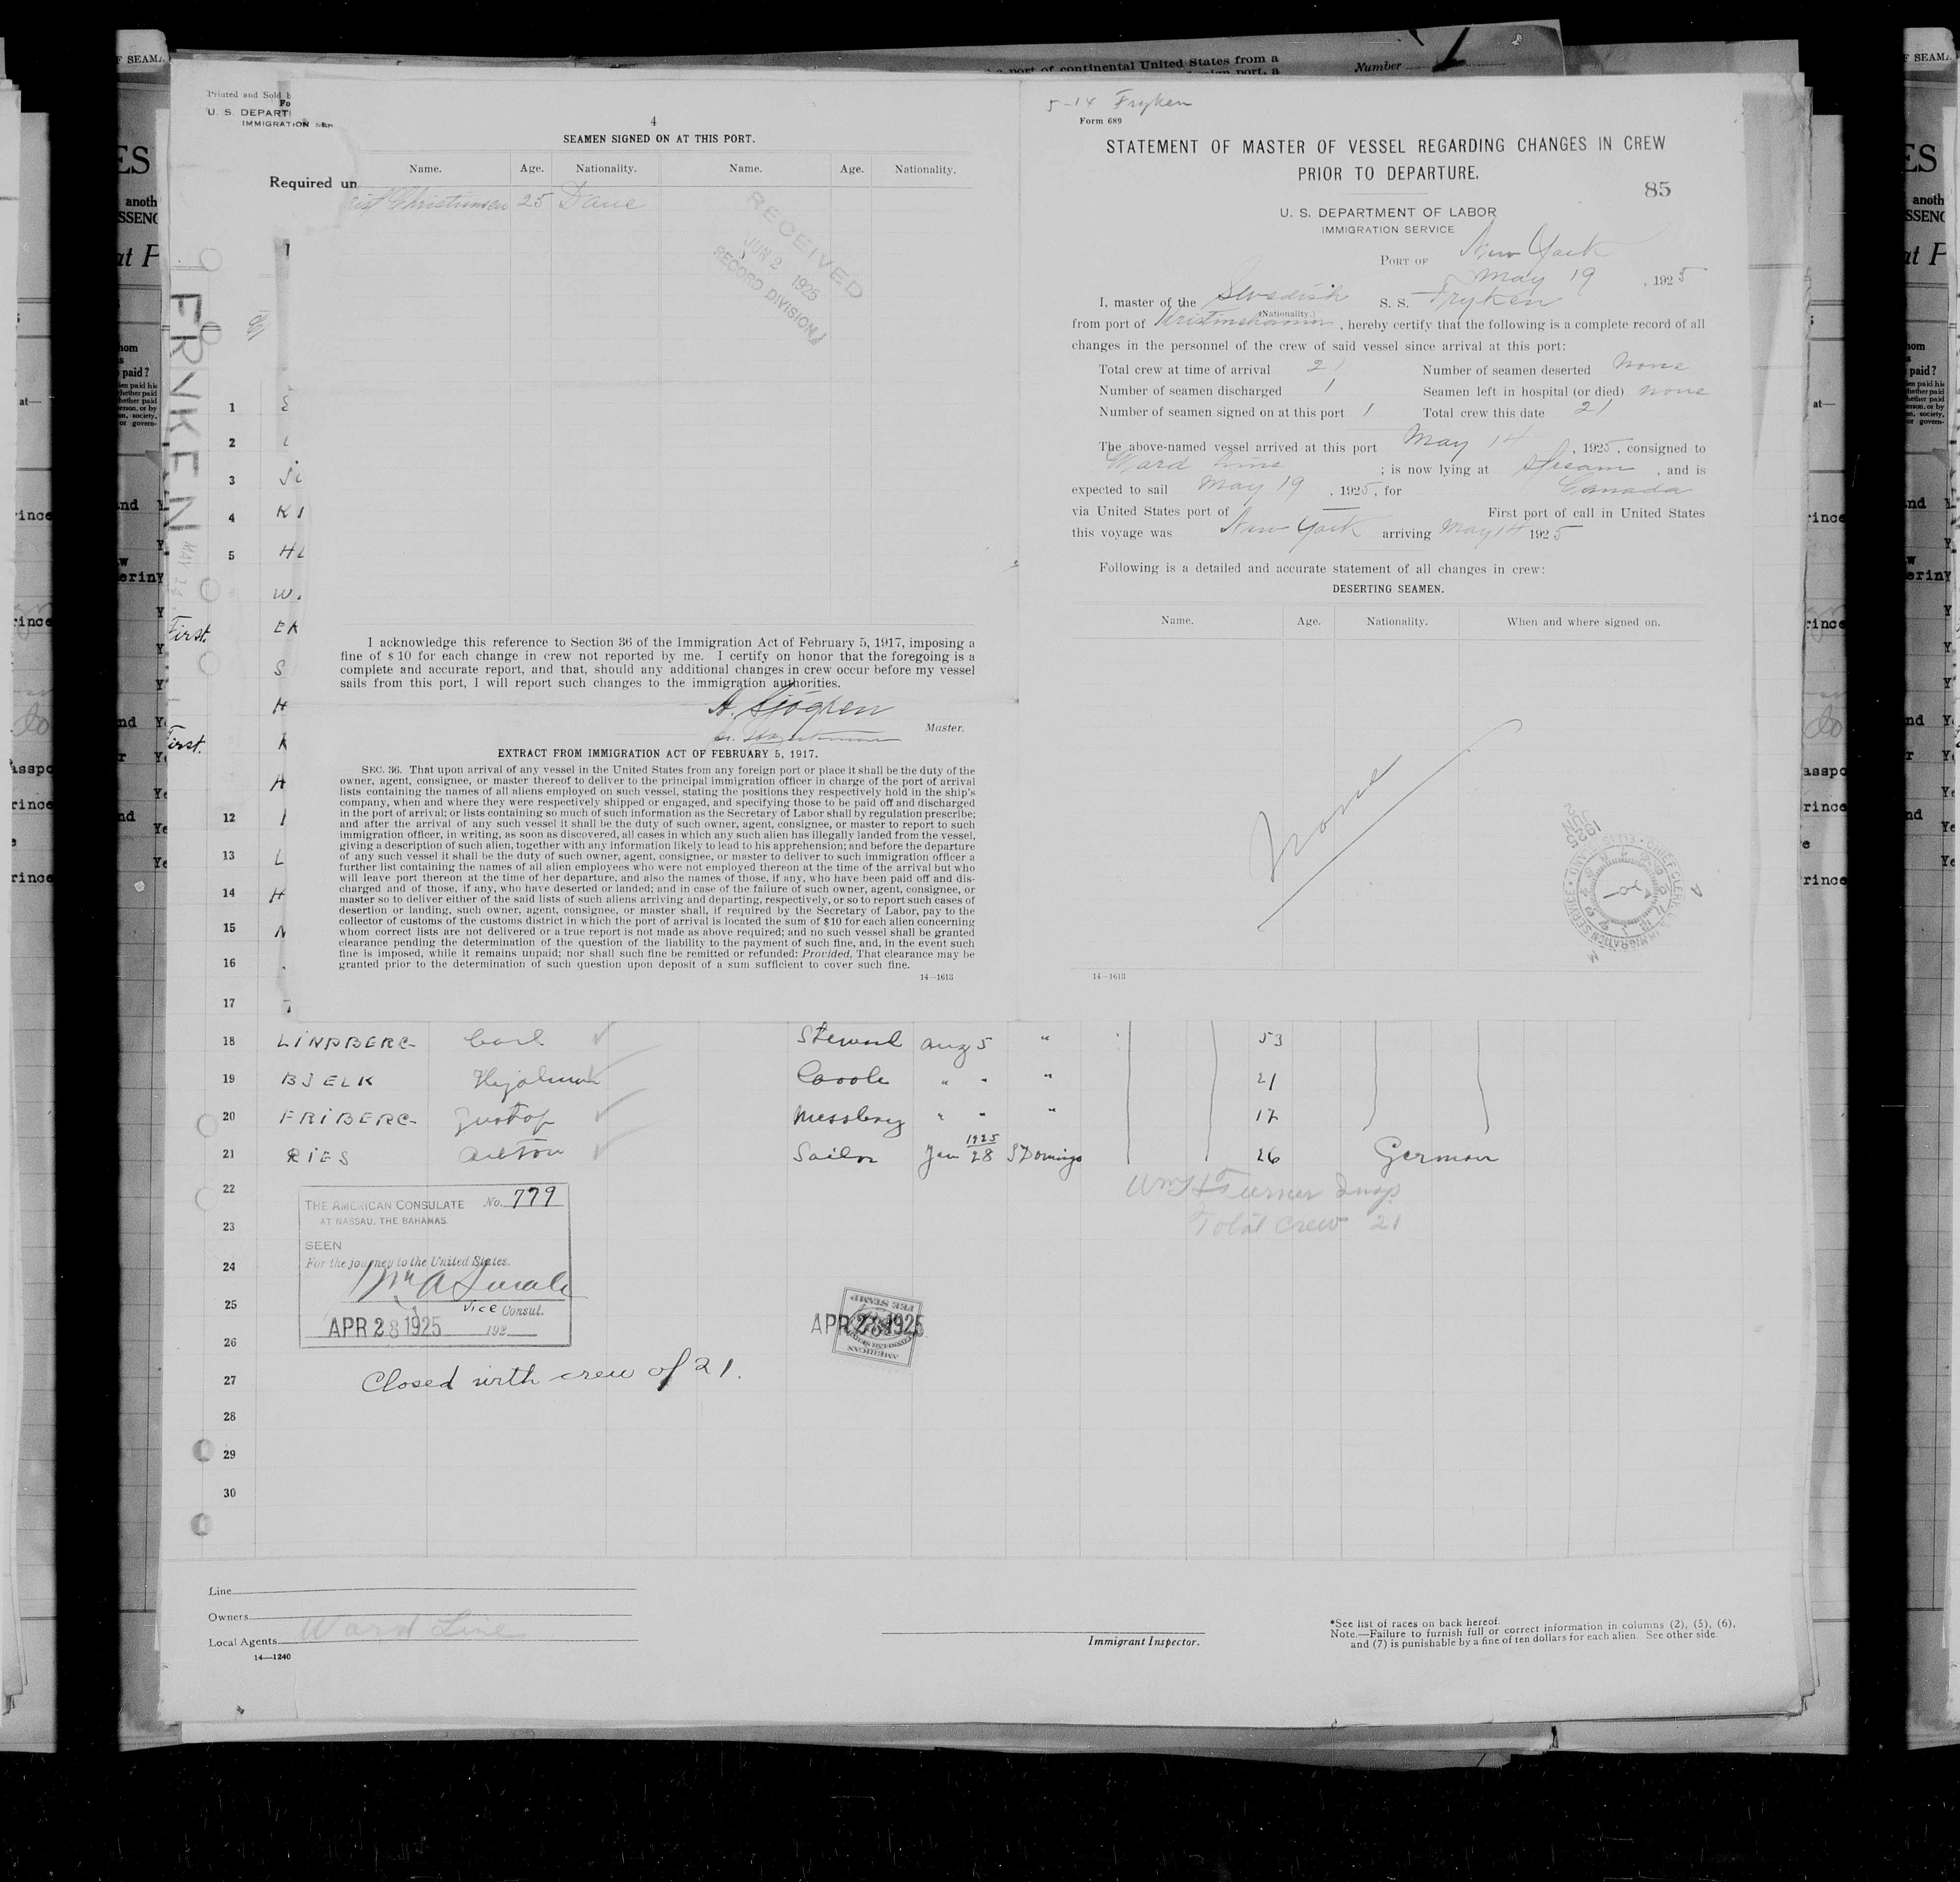 Printed and Sold b
Fo
U. S. DEPART
IMMIGRATION SER
Required un
FRYKEN
First.
First.
4
SEAMEN SIGNED ON AT THIS PORT.
Name. Age. Nationality. Name. Age. Nationality.
Christensen 25 Dane
RECEIVED
JUN 2 1925
RECORD DIVISION
I acknowledge this reference to Section 36 of the Immigration Act of February 5, 1917, imposing a
fine of $10 for each change in crew not reported by me. I certify on honor that the foregoing is a
complete and accurate report, and that, should any additional changes in crew occur before my vessel
sails from this port, I will report such changes to the immigration authorities.
A. Sjögren
Master.
EXTRACT FROM IMMIGRATION ACT OF FEBRUARY 5, 1917.
SEC. 36. That upon arrival of any vessel in the United States from any foreign port or place it shall be the duty of the
owner, agent, consignee, or master thereof to deliver to the principal immigration officer in charge of the port of arrival
lists containing the names of all aliens employed on such vessel, stating the positions they respectively hold in the ship's
company, when and where they were respectively shipped or engaged, and specifying those to be paid off and discharged
in the port of arrival; or lists containing so much of such information as the Secretary of Labor shall by regulation prescribe;
and after the arrival of any such vessel it shall be the duty of such owner, agent, consignee, or master to report to such
immigration officer, in writing, as soon as discovered, all cases in which any such alien has illegally landed from the vessel,
giving a description of such alien, together with any information likely to lead to his apprehension; and before the departure
of any such vessel it shall be the duty of such owner, agent, consignee, or master to deliver to such immigration officer a
further list containing the names of all alien employees who were not employed thereon at the time of the arrival but who
will leave port thereon at the time of her departure, and also the names of those, if any, who have been paid off and dis-
charged and of those, if any, who have deserted or landed; and in case of the failure of such owner, agent, consignee, or
master so to deliver either of the said lists of such aliens arriving and departing, respectively, or so to report such cases of
desertion or landing, such owner, agent, consignee, or master shall, if required by the Secretary of Labor, pay to the
collector of customs of the customs district in which the port of arrival is located the sum of $10 for each alien concerning
whom correct lists are not delivered or a true report is not made as above required; and no such vessel shall be granted
clearance pending the determination of the question of the liability to the payment of such fine, and, in the event such
fine is imposed, while it remains unpaid; nor shall such fine be remitted or refunded: Provided, That clearance may be
granted prior to the determination of such question upon deposit of a sum sufficient to cover such fine.
14—1613
5-14 Fryken
Form 689
STATEMENT OF MASTER OF VESSEL REGARDING CHANGES IN CREW
PRIOR TO DEPARTURE.
85
U. S. DEPARTMENT OF LABOR
IMMIGRATION SERVICE
PORT OF New York
May 19, 1925
I, master of the Swedish S. S. Fryken
(Nationality.)
from port of Kristinehamn, hereby certify that the following is a complete record of all
changes in the personnel of the crew of said vessel since arrival at this port:
Total crew at time of arrival 21 Number of seamen deserted none
Number of seamen discharged 1 Seamen left in hospital (or died) none
Number of seamen signed on at this port 1 Total crew this date 21
The above-named vessel arrived at this port May 14, 1925, consigned to
Ward Line; is now lying at stream, and is
expected to sail May 19, 1925, for Canada
via United States port of First port of call in United States
this voyage was New York arriving May 14 1925
Following is a detailed and accurate statement of all changes in crew:
DESERTING SEAMEN.
Name. Age. Nationality. When and where signed on.
None
14—1613
1
2
3
4
5
12
13
14
15
16
17
18 LINDBERG Carl Steward Aug 5 " 53
19 BJELK Hjalmar Cook " " " 21
20 FRIBERG Gustof Messboy " " " 17
21 RIES Anton Sailor Jan 28 1925 S Domingo 26 German
22
23
24
25
26
27
28
29
30
Wm H Turner Insp.
Total crew 21
THE AMERICAN CONSULATE No. 779
AT NASSAU, THE BAHAMAS.
SEEN
For the journey to the United States.
Vice Consul.
APR 28 1925 192
AMERICAN
FEE STAMP
APR 28 1925
Closed with crew of 21.
Line
Owners
Local Agents Ward Line
14—1240
Immigrant Inspector.
*See list of races on back hereof.
Note.—Failure to furnish full or correct information in columns (2), (5), (6),
and (7) is punishable by a fine of ten dollars for each alien. See other side.